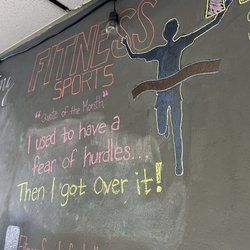 FITNESS
SPORTS
"Quote of the Month"
I used to have a
fear of hurdles...
Then I got over it!